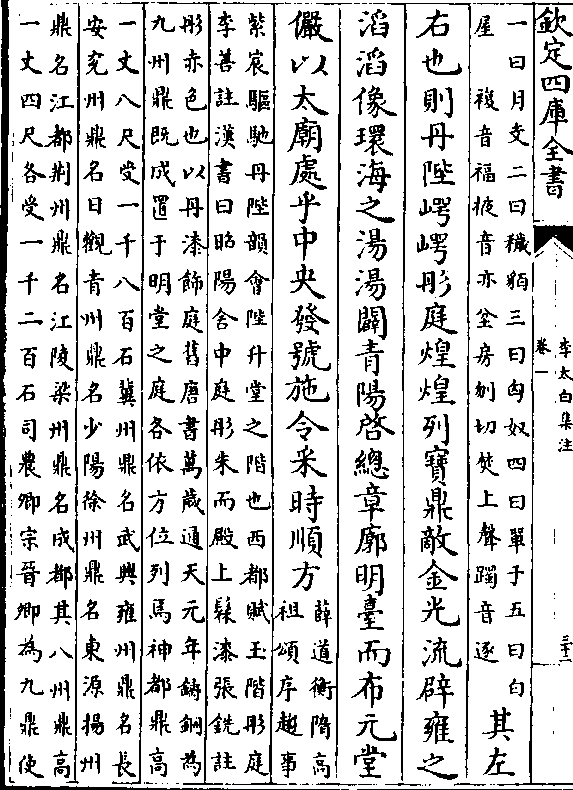 欽定四庫全書
李太白集注
卷一
三十二
一曰月支二曰穢貊三曰匈奴四曰單于五曰白
屋 複音福掖音亦坌房刎切焚上聲躅音逐
其左
右也則丹陛崿崿彤庭煌煌列寶鼎敵金光流辟雍之
滔滔像環海之湯湯闢青陽啓總章廓明臺而布元堂
儼以太廟處乎中央發號施令采時順方
薛道衡隋高
祖頌序趨事
紫宸驅馳丹陛韻會陛升堂之階也西都賦玉階彤庭
李善註漢書曰昭陽舍中庭彤朱而殿上髹漆張銑註
彤亦色也以丹漆飾庭舊唐書萬歲通天元年鑄銅為
九州鼎既成置于明堂之庭各依方位列焉神都鼎高
一丈八尺受一千八百石冀州鼎名武興雍州鼎名長
安兗州鼎名日觀青州鼎名少陽徐州鼎名東源揚州
鼎名江都荆州鼎名江陵梁州鼎名成都其八州鼎高
一丈四尺各受一千二百石司農卿宗晉卿為九鼎使